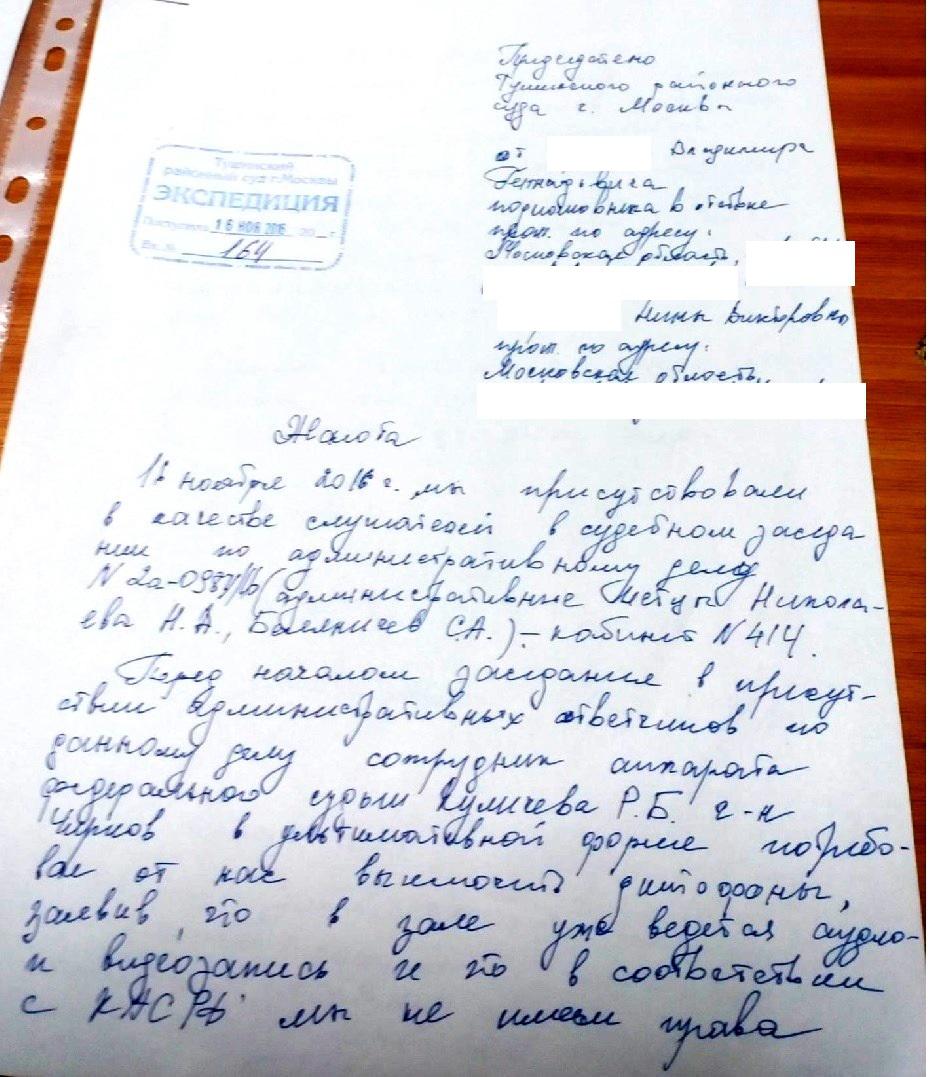 Председателю
Тушинского районного
суда г. Москвы
от Владимира
Геннадьевича
подполковника в отставке
прож. по адресу:
Московская область,
Нины Викторовны
прож. по адресу:
Московская область,
Тушинский
районный суд г. Москвы
ЭКСПЕДИЦИЯ
Поступило 16 НОЯ 2016 20 г.
Вх. № 164
Жалоба
16 ноября 2016 г. мы присутствовали
в качестве слушателей в судебном заседа
нии по административному делу
N (административные истцы Никола-
ева Н.А., С.А.) – кабинет N 414.
Перед началом заседания в присут-
ствии административных ответчиков по
данному делу сотрудник аппарата
федерального судьи Куличева Р.Б. г-н
Чернов в ультимативной форме потребо-
вал от нас выключить диктофоны,
заявив, что в зале уже ведется аудио-
и видеозапись и что в соответствии
с КАС РФ мы не имеем права